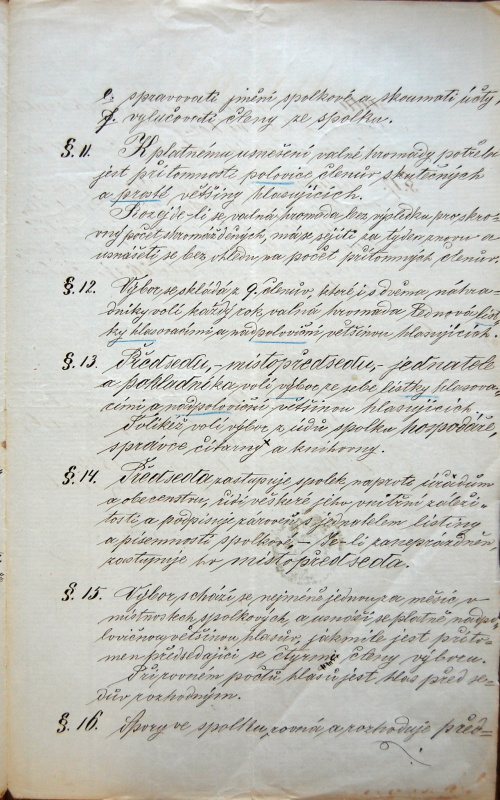 e. spravovati jmění spolkové a skoumati účty
f. vylučovati členy ze spolku.
§. 11. K platnému usnešení valné hromady potřeba
jest přítomnosti polovice členův skutečných
a prosté většiny hlasujících.
Rozejde-li se valná hromada bez výsledku pro skro-
vný počet shromážděných, má se sejíti za týden znovu a
usnášeti se bez ohledu na počet přítomných členův.
§. 12. Výbor se skládá z 9. členův, které i s dvěma náhra-
dníky volí každý rok valná hromada
ky hlasovacími a nadpoloviční většinou hlasujících.
§. 13. Předsedu,- místopředsedu,- jednatele
a pokladníka volí výbor ze sebe lístky hlasova-
cími a nadpoloviční většinou hlasujících
Tolikéž volí výbor z údů spolku hospodáře,
správce čítárny a knihovny.
§. 14. Předseda zastupuje spolek naproti úřadům
a obecenstvu, řídí veškeré jeho vnitřní záleži-
tosti, a podpisuje zároveň s jednatelem listiny
a písemnosti spolkové.- Je-li zaneprázdněn
zastupuje ho místopředseda.
§. 15. Výbor schází se nejméně jednou za měsíc v
místnostech spolkových, a usnáší se platně nadpo-
lovičnou většinou hlasův, jakmile jest příto-
men předsedající se čtyrmi členy výboru.
Při rovném počtu hlasů jest hlas předse-
dův rozhodným.
§. 16. Spory ve spolku rovná a rozhoduje před-